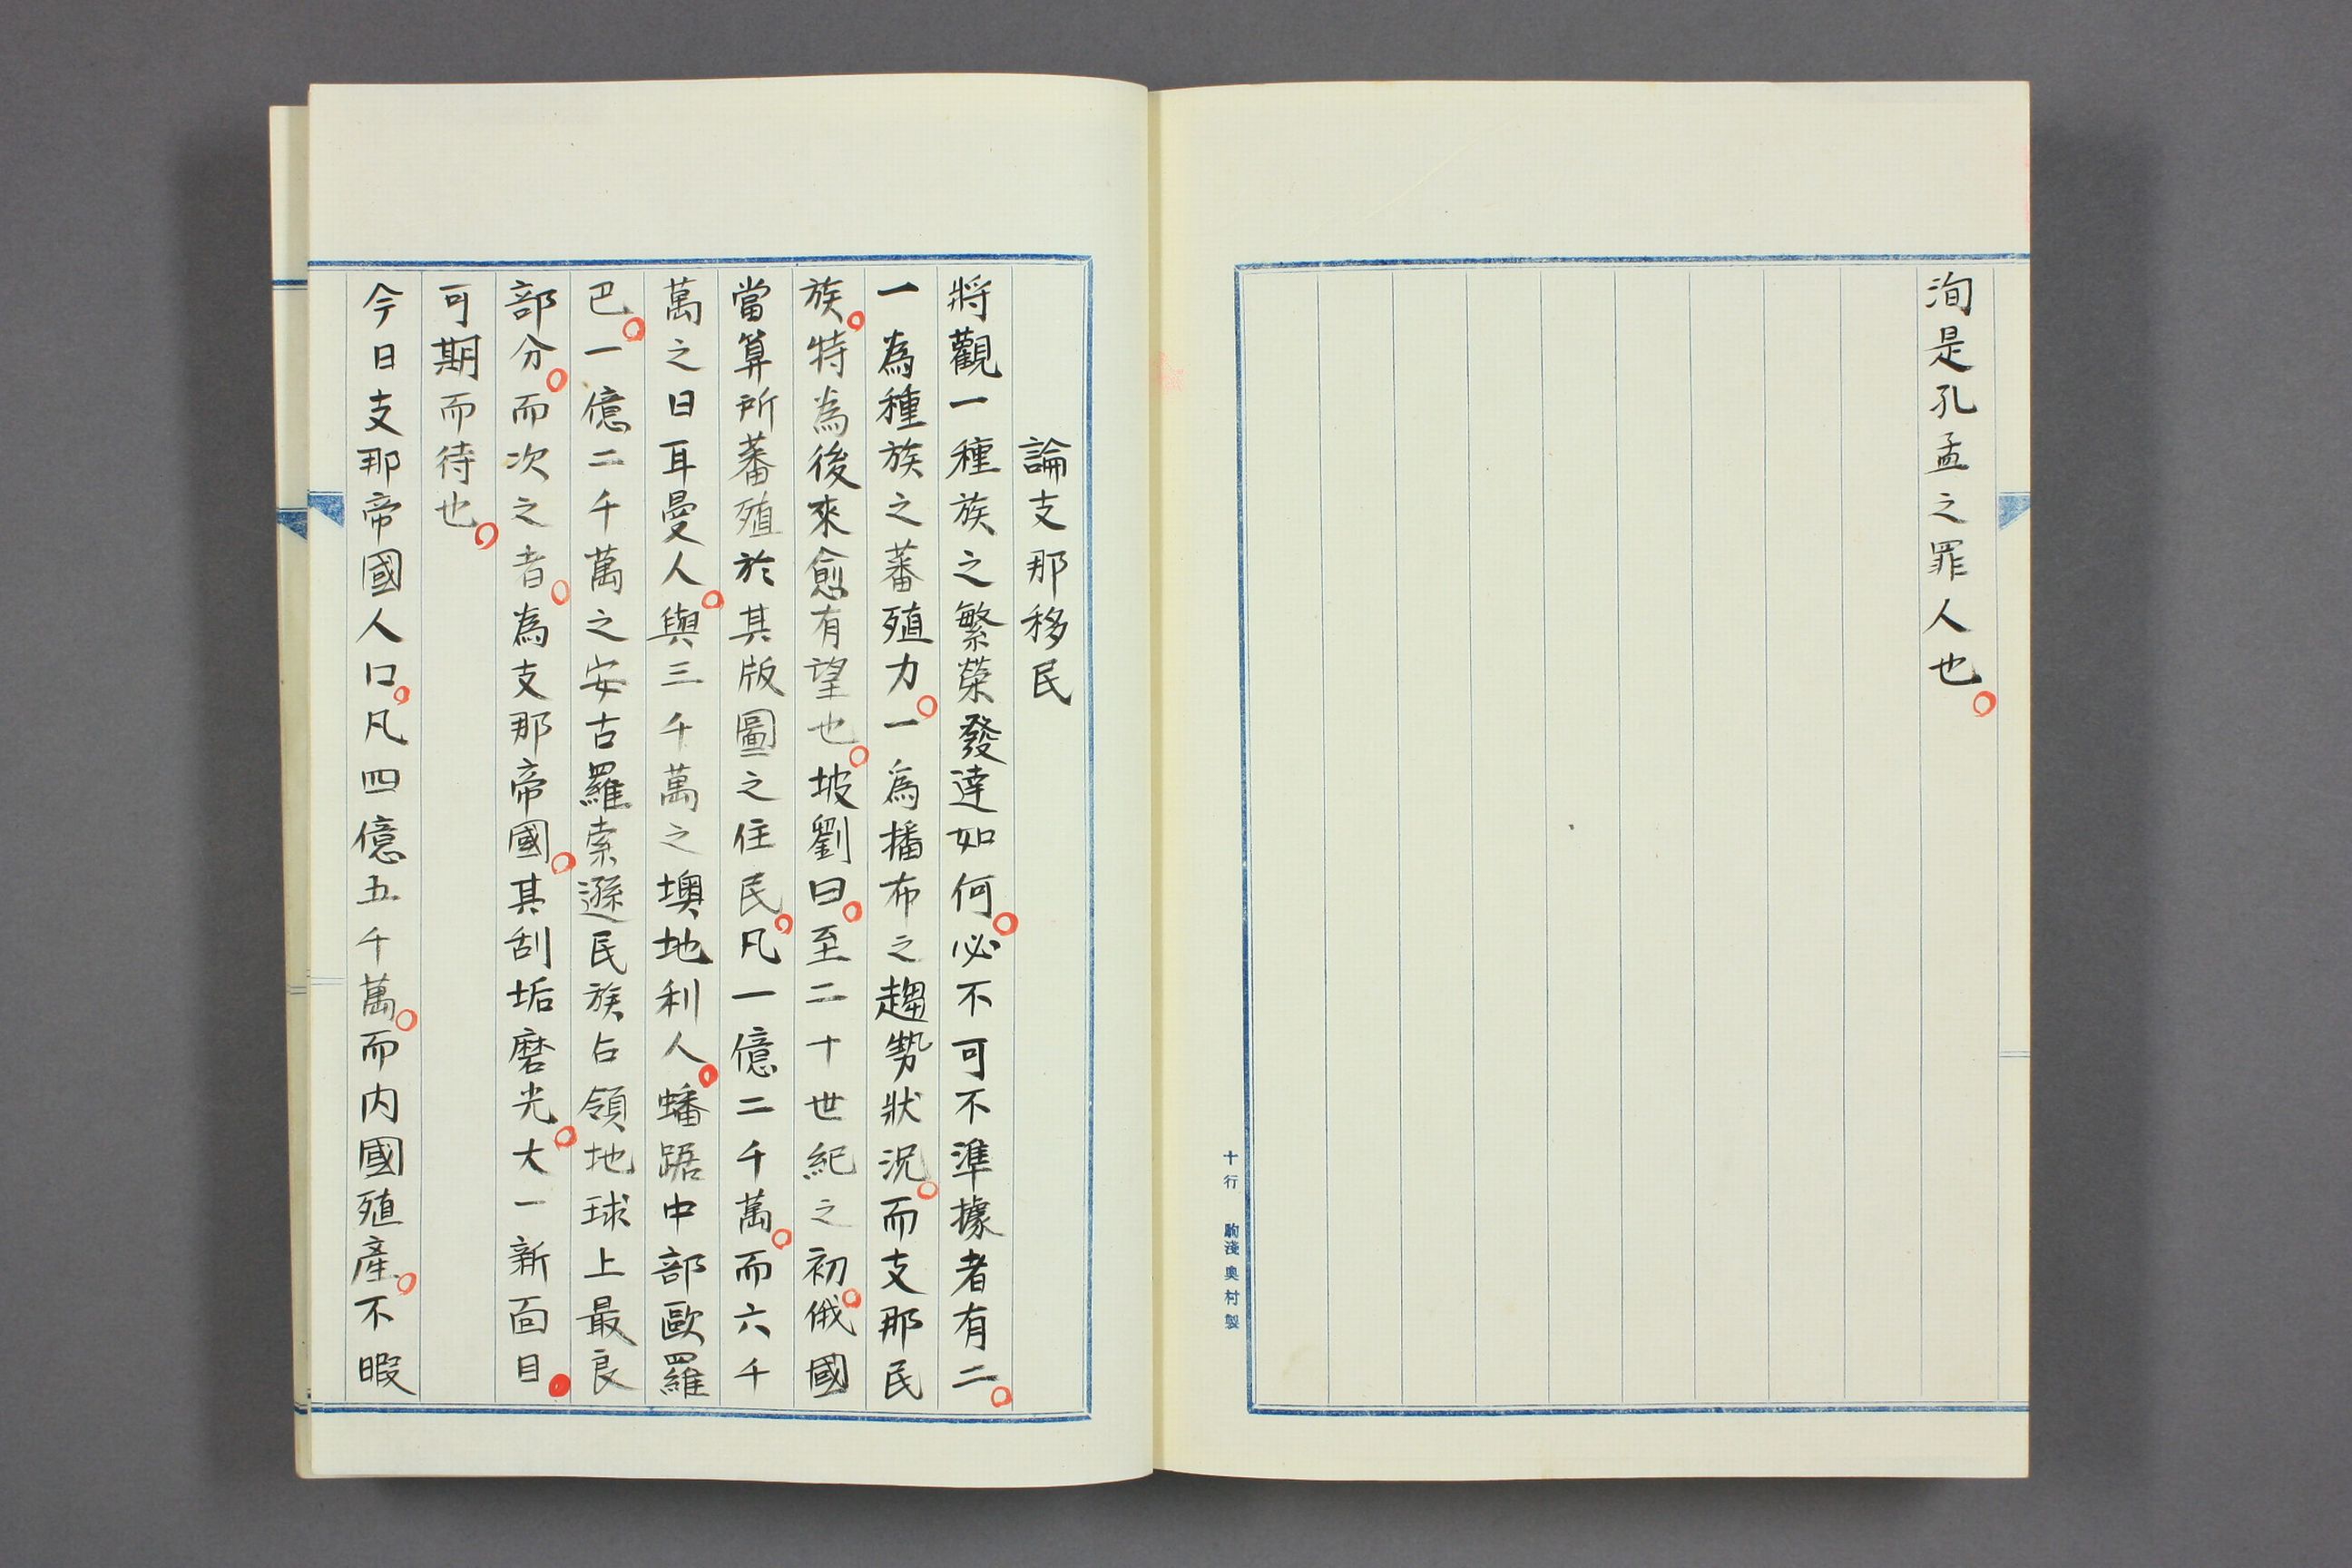 洵是孔孟之罪人也。
十行 駒淺奧村製
論支那移民
將觀一種族之繁榮發達如何。必不可不準據者有二。
一為種族之蕃殖力。一為播布之趨勢狀況。而支那民
族。特為後來愈有望也。坡劉曰。至二十世紀之初。俄國
當算所蕃殖於其版圖之住民。凡一億二千萬。而六千
萬之日耳曼人。與三千萬之墺地利人。蟠踞中部歐羅
巴。一億二千萬之安古羅索遜民族占領地球上最良
部分。而次之者。為支那帝國。其刮垢磨光。大一新面目。
可期而待也。
今日支那帝國人口。凡四億五千萬。而内國殖產。不暇